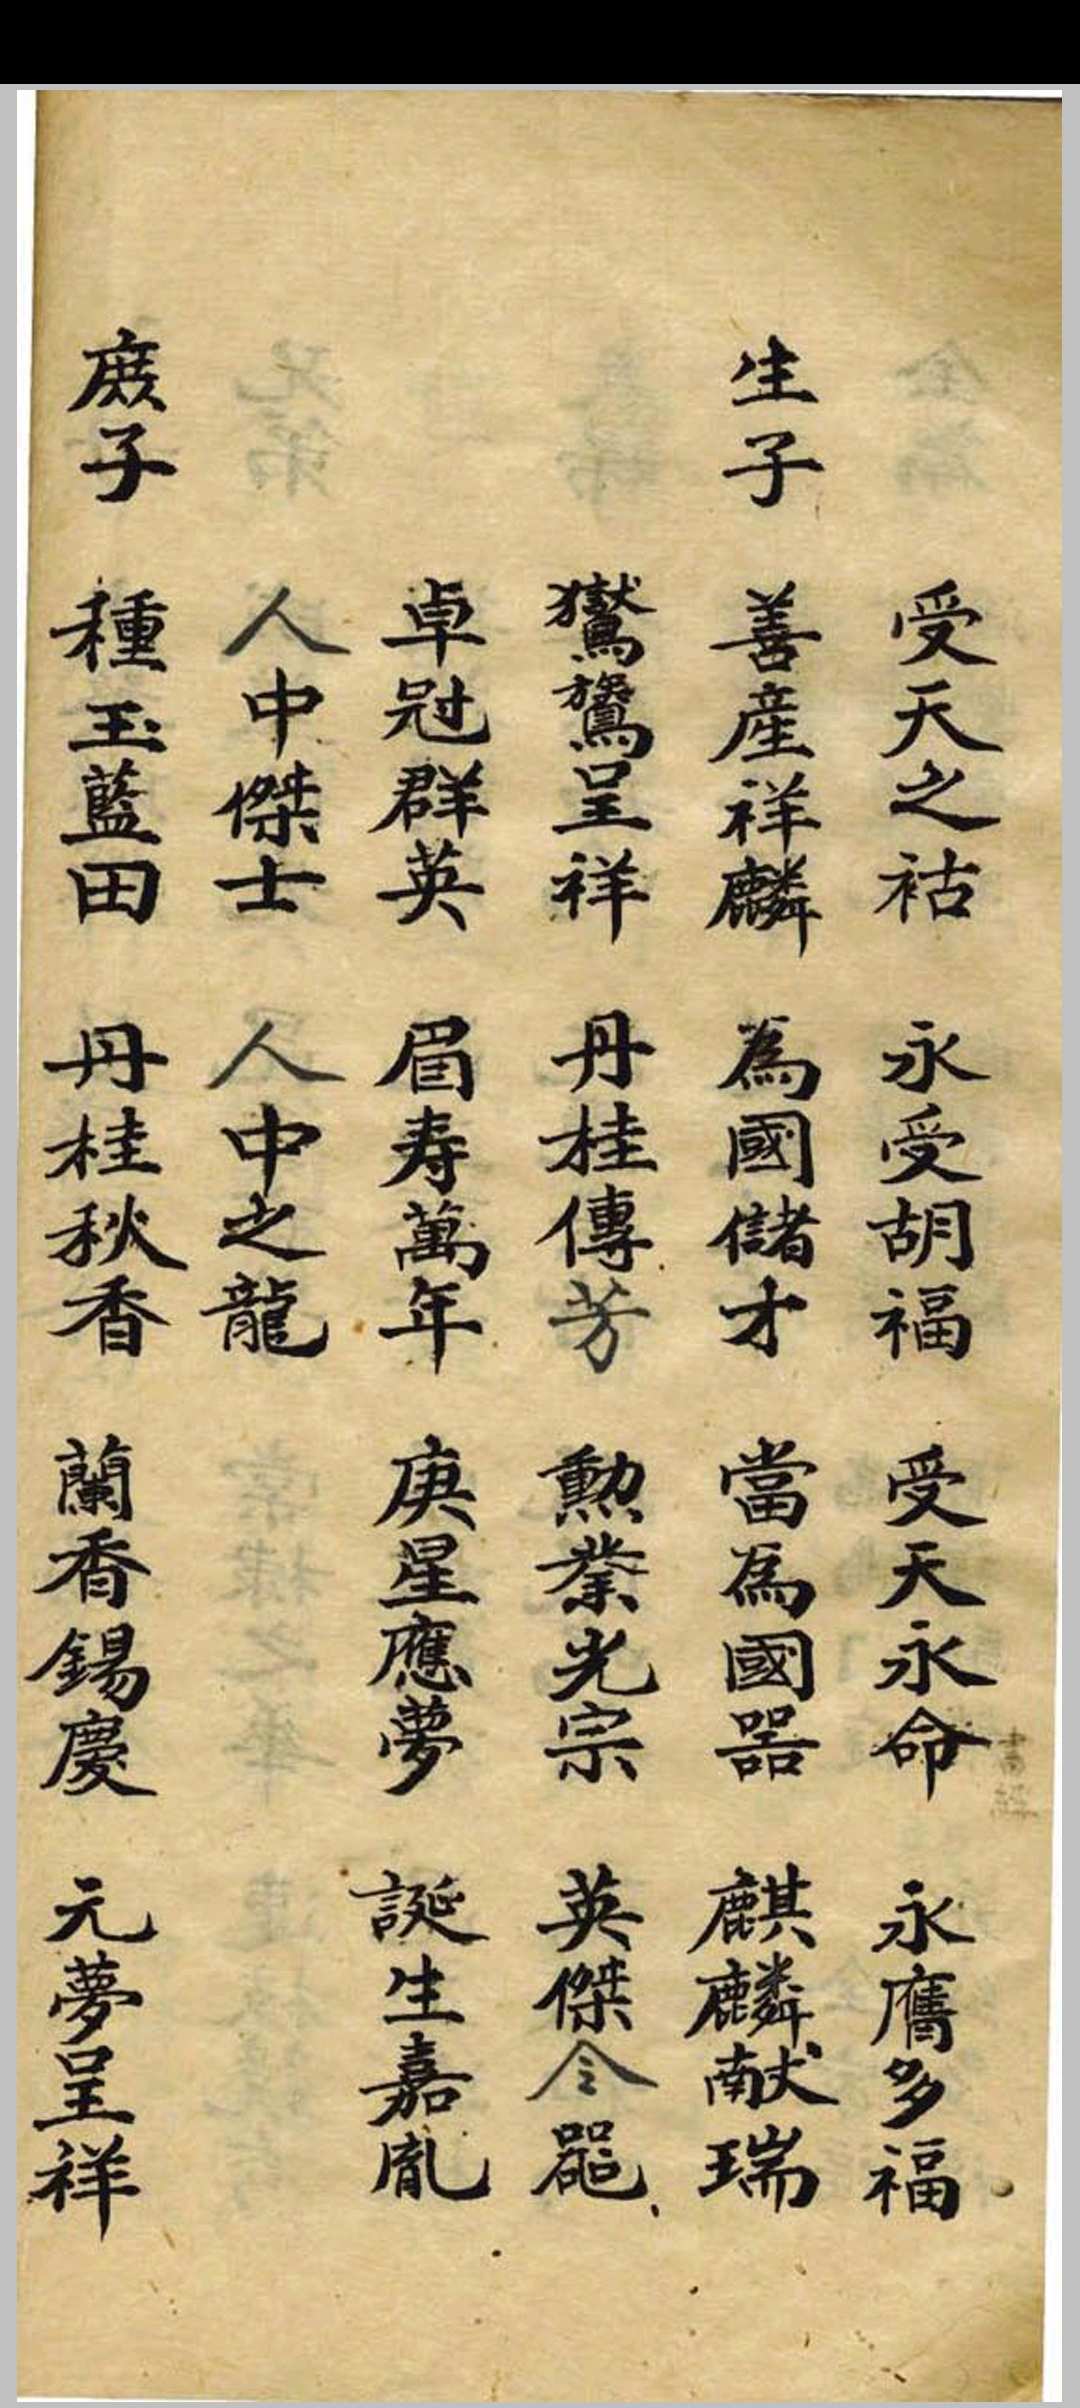 受天之祜 永受胡福 受天永命 永膺多福
生子 善産祥麟 為國儲才 當為國噐 麒麟献瑞
鸑鷟呈祥 丹桂傳芳 勲業光宗 英傑令噐
卓冠群英 眉寿萬年 庚星應夢 誕生嘉胤
人中傑士 人中之龍
庶子 種玉藍田 丹桂秋香 蘭香錫慶 元夢呈祥